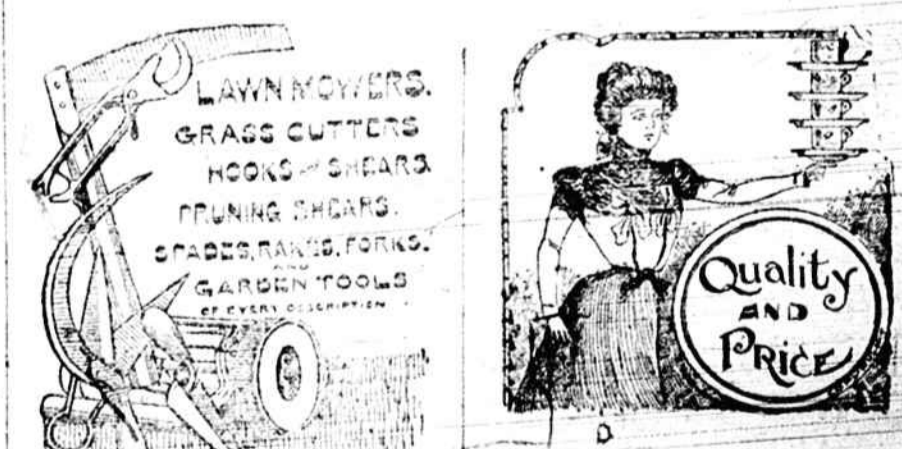 LAWN MOWERS.
GRASS CUTTERS
HOOKS and SHEARS.
PRUNING SHEARS.
SPADES, RAKES, FORKS.
AND
GARDEN TOOLS
OF EVERY DESCRIPTION
Quality
AND
PRICE
D